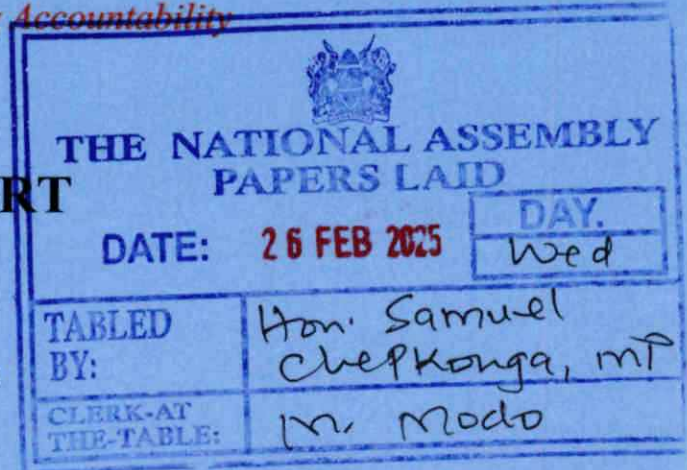 Accountability
THE NATIONAL ASSEMBLY
PAPERS LAID
RT
DATE: 26 FEB 2025
DAY.
Wed
TABLED BY:
Hon. Samuel
Chepkonga, MP
CLERK-AT THE-TABLE:
M. Modo